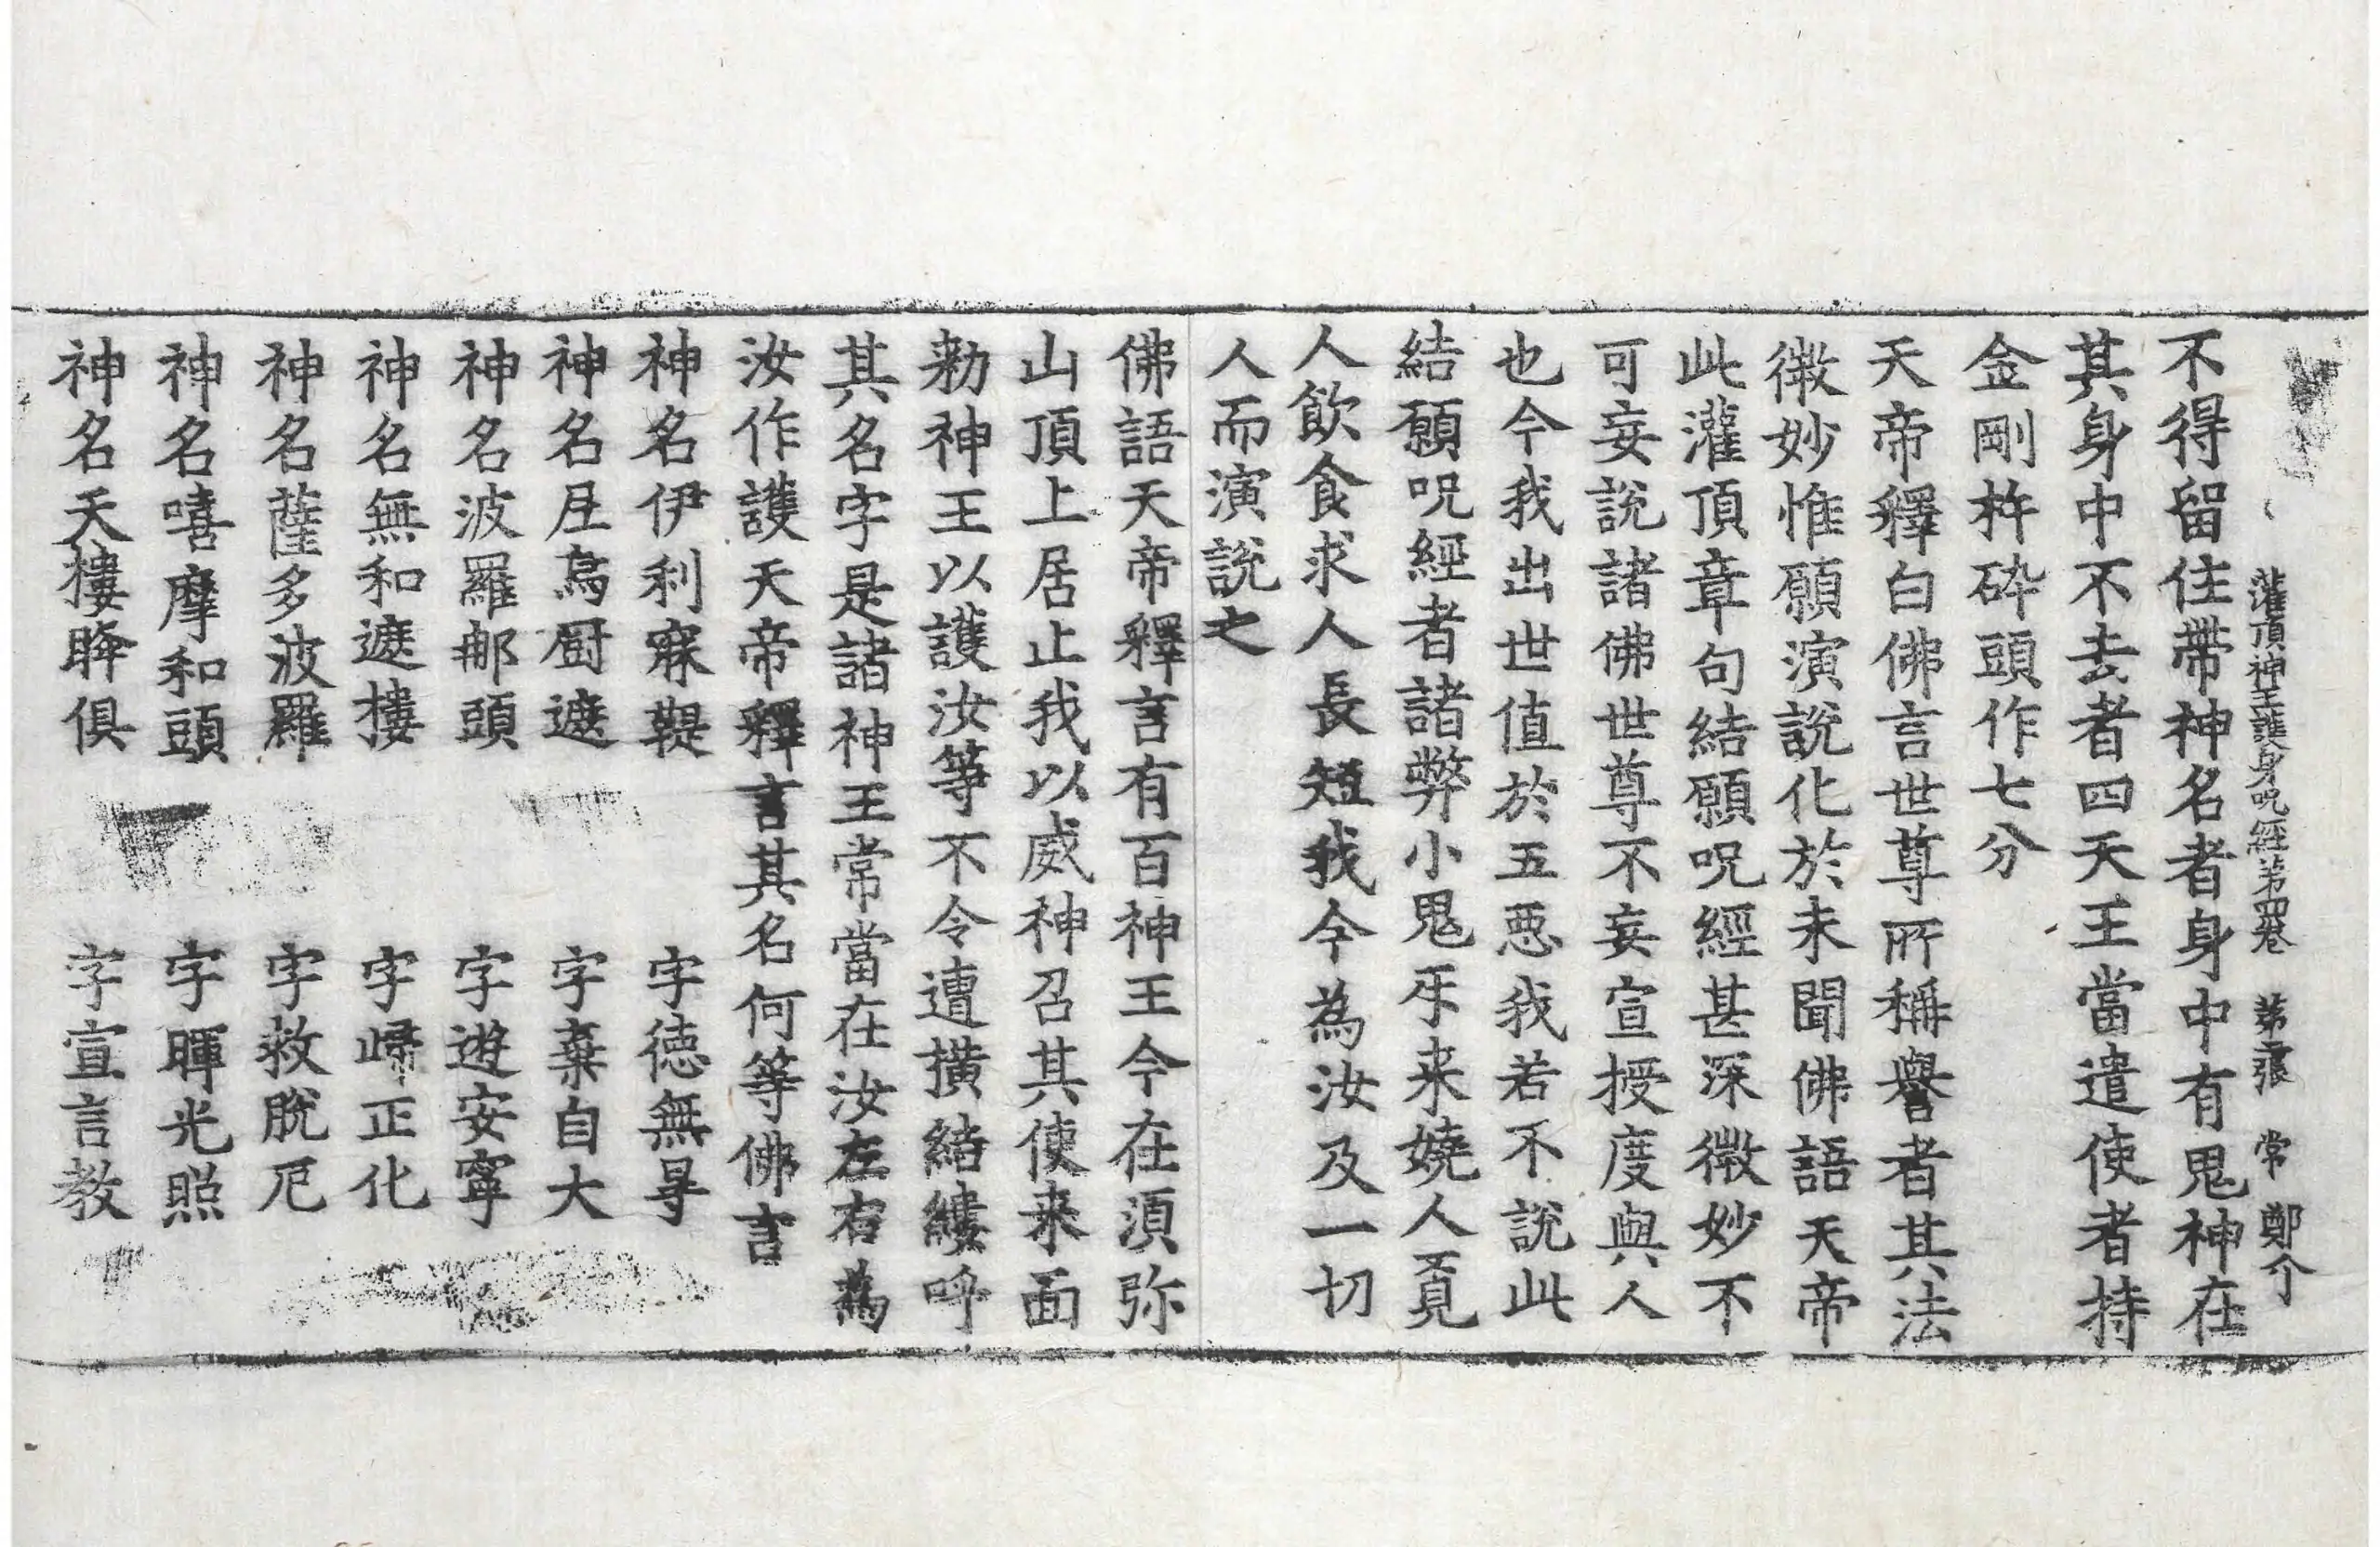 灌頂神王護身呪經第四卷　第二張　常　鄭介
不得留住帶神名者身中有鬼神在
其身中不去者四天王當遣使者持
金剛杵碎頭作七分
天帝釋白佛言世尊所稱譽者其法
微妙惟願演說化於未聞佛語天帝
此灌頂章句結願呪經甚深微妙不
可妄說諸佛世尊不妄宣授度與人
也今我出世值於五惡我若不說此
結願呪經者諸弊小鬼乐来嬈人覓
人飲食求人長短我今為汝及一切
人而演說之
佛語天帝釋言有百神王今在須弥
山頂上居止我以威神召其使来面
勑神王以護汝等不令遭橫結縷呼
其名字是諸神王常當在汝左右為
汝作護天帝釋言其名何等佛言
神名伊利寐鞮　字德無㝵
神名𡉏㝹厨遮　字棄自大
神名波羅那頭　字遊安寧
神名無和遮樓　字歸正化
神名薩多波羅　字救脫厄
神名嘻摩和頭　字暉光照
神名天樓睔俱　字宣言教